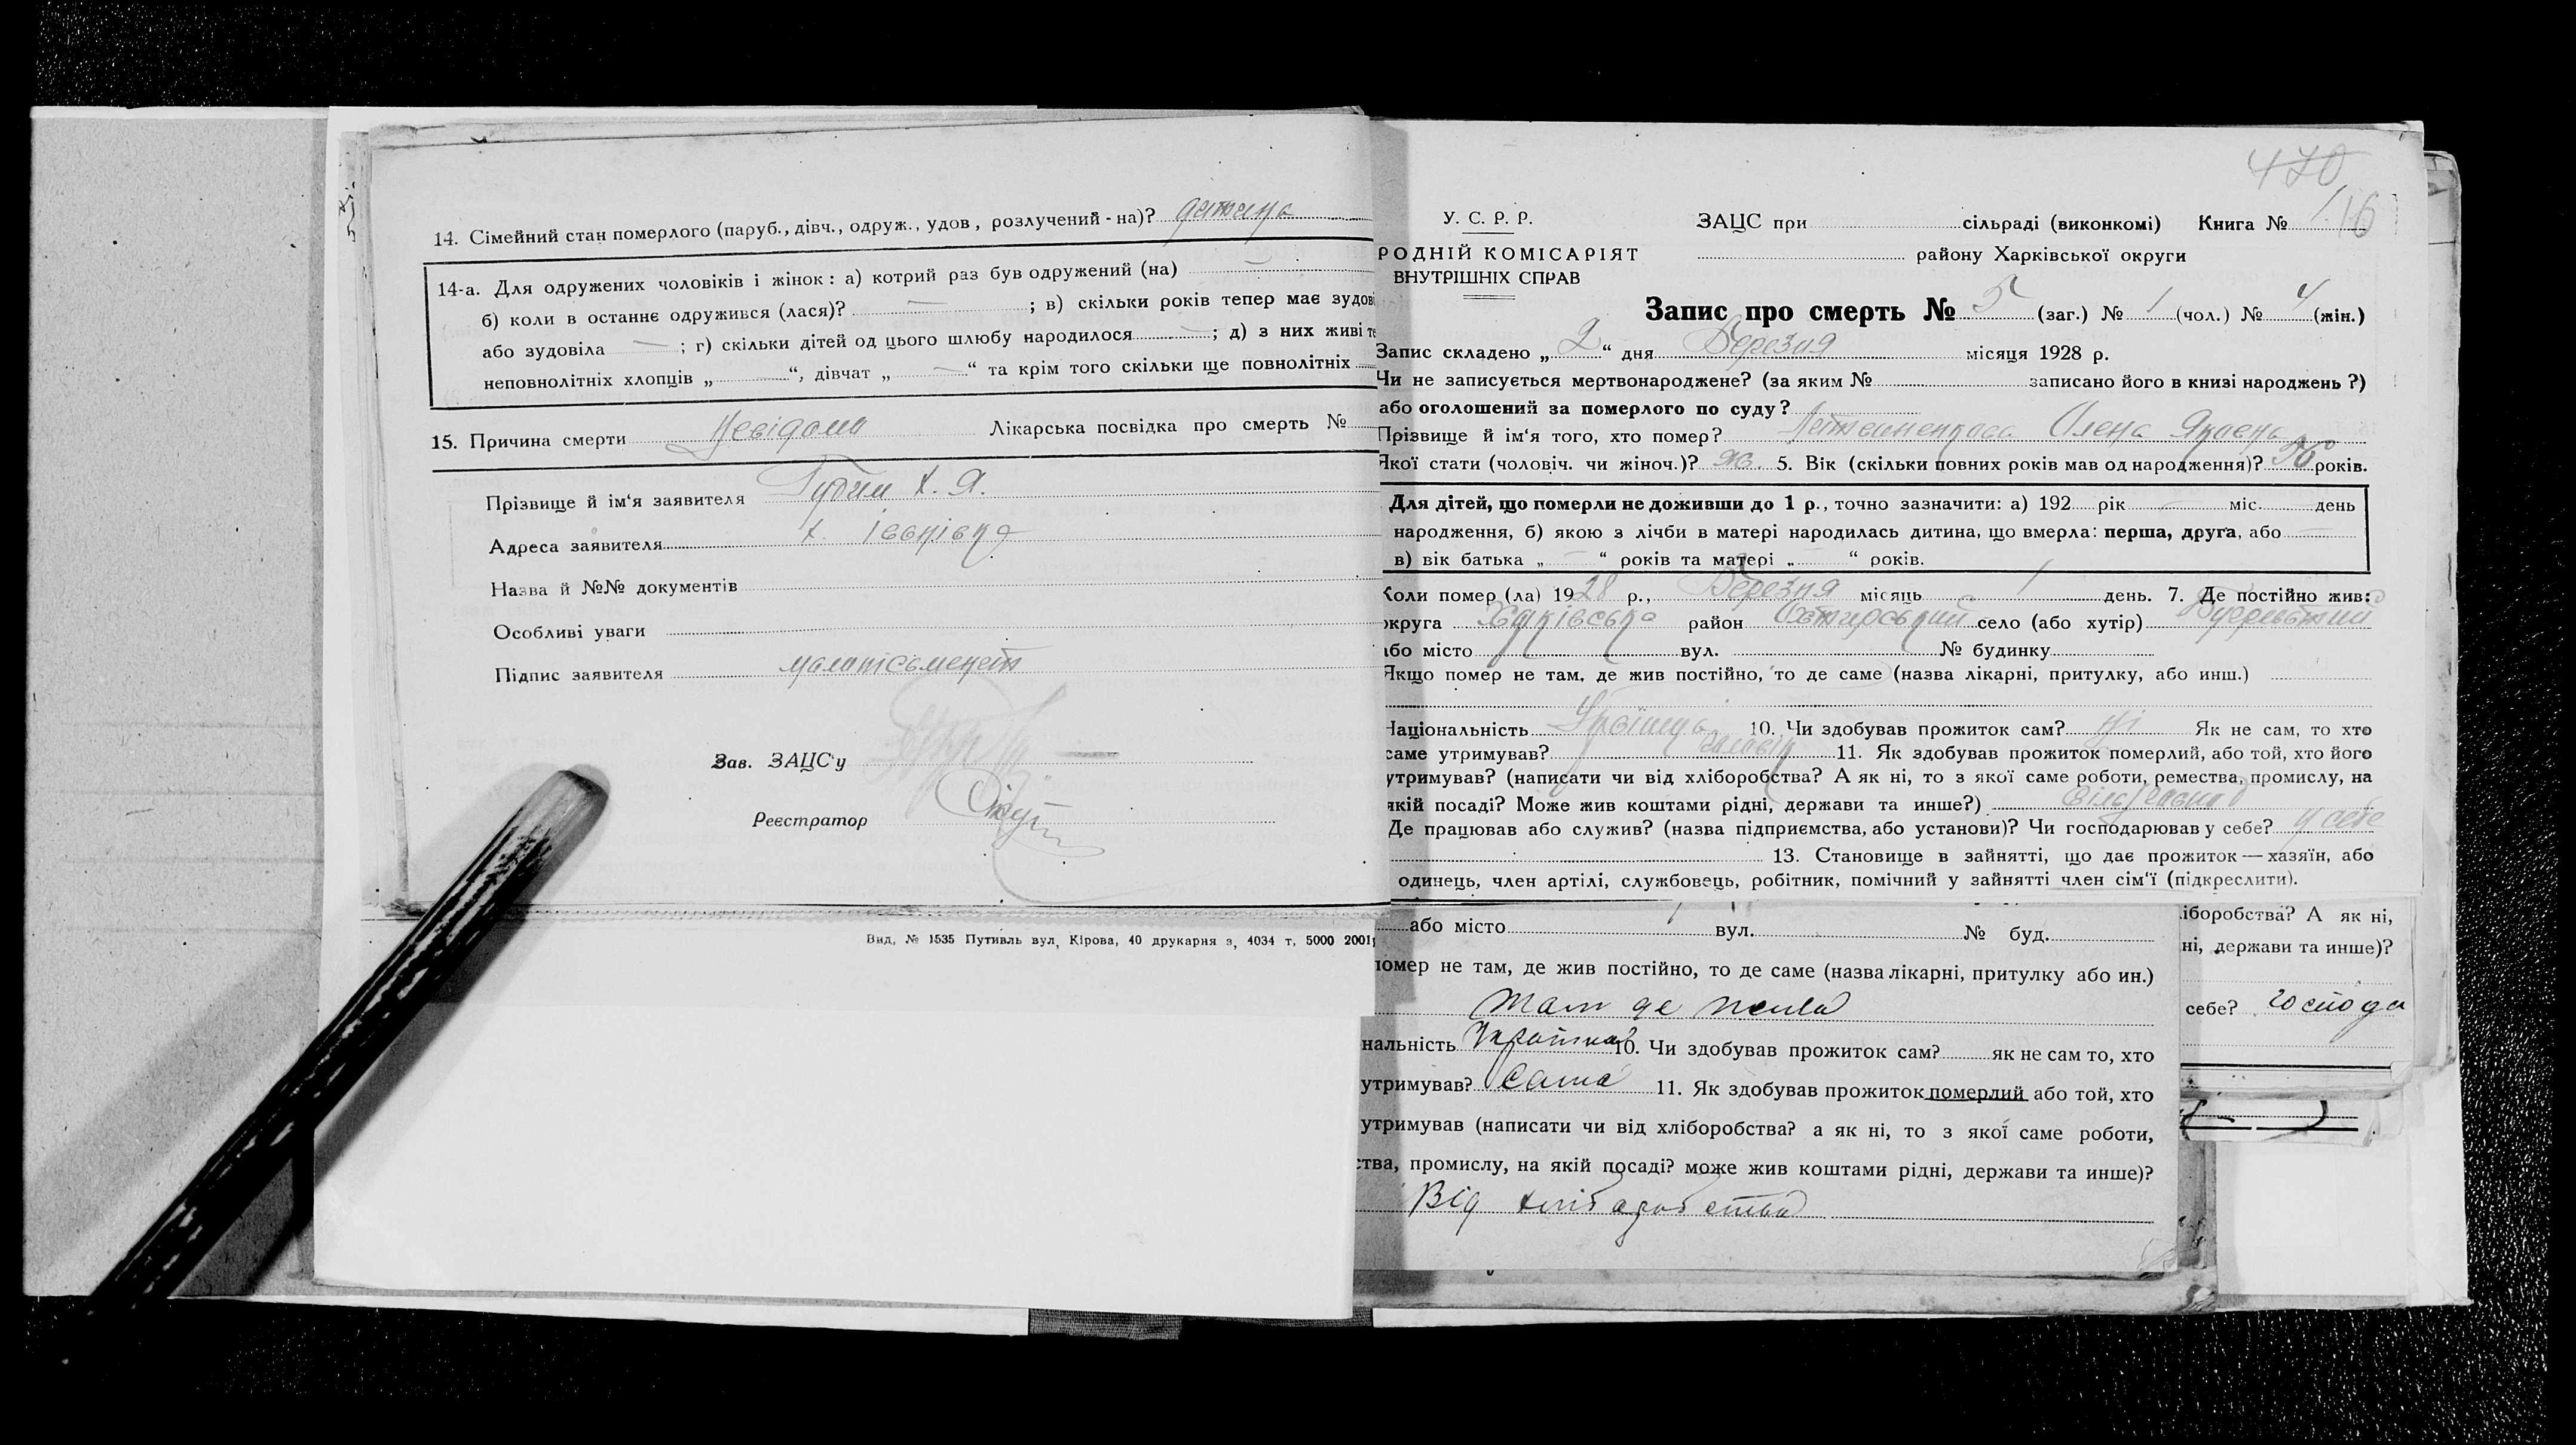 14. Сімейний стан померлого (паруб., дівч., одруж., удов, розлучений-на)? дитина
14-а. Для одружених чоловіків і жінок: а) котрий раз був одружений (на)
б) коли в останнє одружився (лася)? ; в) скільки років тепер має зудов
або зудовіла ; г) скільки дітей од цього шлюбу народилося ; д) з них живі те
неповнолітніх хлопців „ “, дівчат „ “ та крім того скільки ще повнолітніх
15. Причина смерти Невідома Лікарська посвідка про смерть №
Прізвище й ім‘я заявителя Губим Х. Я.
Адреса заявителя х. Іванівка
Назва й №№ документів
Особливі уваги
Підпис заявителя малописьменет
Зав. ЗАЦС‘у
Реєстратор
Вид. № 1535 Путивль вул, Кірова, 40 друкарня з, 4034 т, 5000 2001
470
У. С. Р. Р. ЗАЦС при сільраді (виконкомі) Книга № 1 16
РОДНІЙ КОМІСАРІЯТ району Харківської округи
ВНУТРІШНІХ СПРАВ
Запис про смерть № 5 (заг.) № 1 (чол.) № 4 (жін.)
Запис складено „ 2 “ дня Березня місяця 1928 р.
Чи не записується мертвонароджене? (за яким № записано його в книзі народжень ?)
або оголошений за померлого по суду?
Прізвище й ім‘я того, хто помер? Олена
Якої стати (чоловіч. чи жіноч.)? ж. 5. Вік (скільки повних років мав од народження)? років.
Для дітей, що померли не доживши до 1 р., точно зазначити: а) 192 рік міс. день
народження, б) якою з лічби в матері народилась дитина, що вмерла: перша, друга, або
в) вік батька „ “ років та матері „ “ років.
Коли помер (ла) 1928 р., Березня місяць 1 день. 7. Де постійно жив:
округа Харківська район Охтирський село (або хутір)
або місто вул. № будинку
Якщо помер не там, де жив постійно, то де саме (назва лікарні, притулку, або инш.)
Національність 10. Чи здобував прожиток сам? ні Як не сам, то хто
саме утримував? чоловік 11. Як здобував прожиток померлий, або той, хто його
утримував? (написати чи від хліборобства? А як ні, то з якої саме роботи, ремества, промислу, на
якій посаді? Може жив коштами рідні, держави та инше?)
Де працював або служив? (назва підприємства, або установи)? Чи господарював у себе? у себе
13. Становище в зайнятті, що дає прожиток — хазяїн, або
одинець, член артілі, службовець, робітник, помічний у зайнятті член сім‘ї (підкреслити).
або місто вул. № буд.
помер не там, де жив постійно, то де саме (назва лікарні, притулку або ин.)
там де жила
нальність Українка 10. Чи здобував прожиток сам? як не сам то, хто
утримував? сама 11. Як здобував прожиток померлий або той, хто
утримував (написати чи від хліборобства? а як ні, то з якої саме роботи,
ства, промислу, на якій посаді? може жив коштами рідні, держави та инше)?
Від хліборобства
іборобства? А як ні,
ні, держави та инше)?
себе? господа